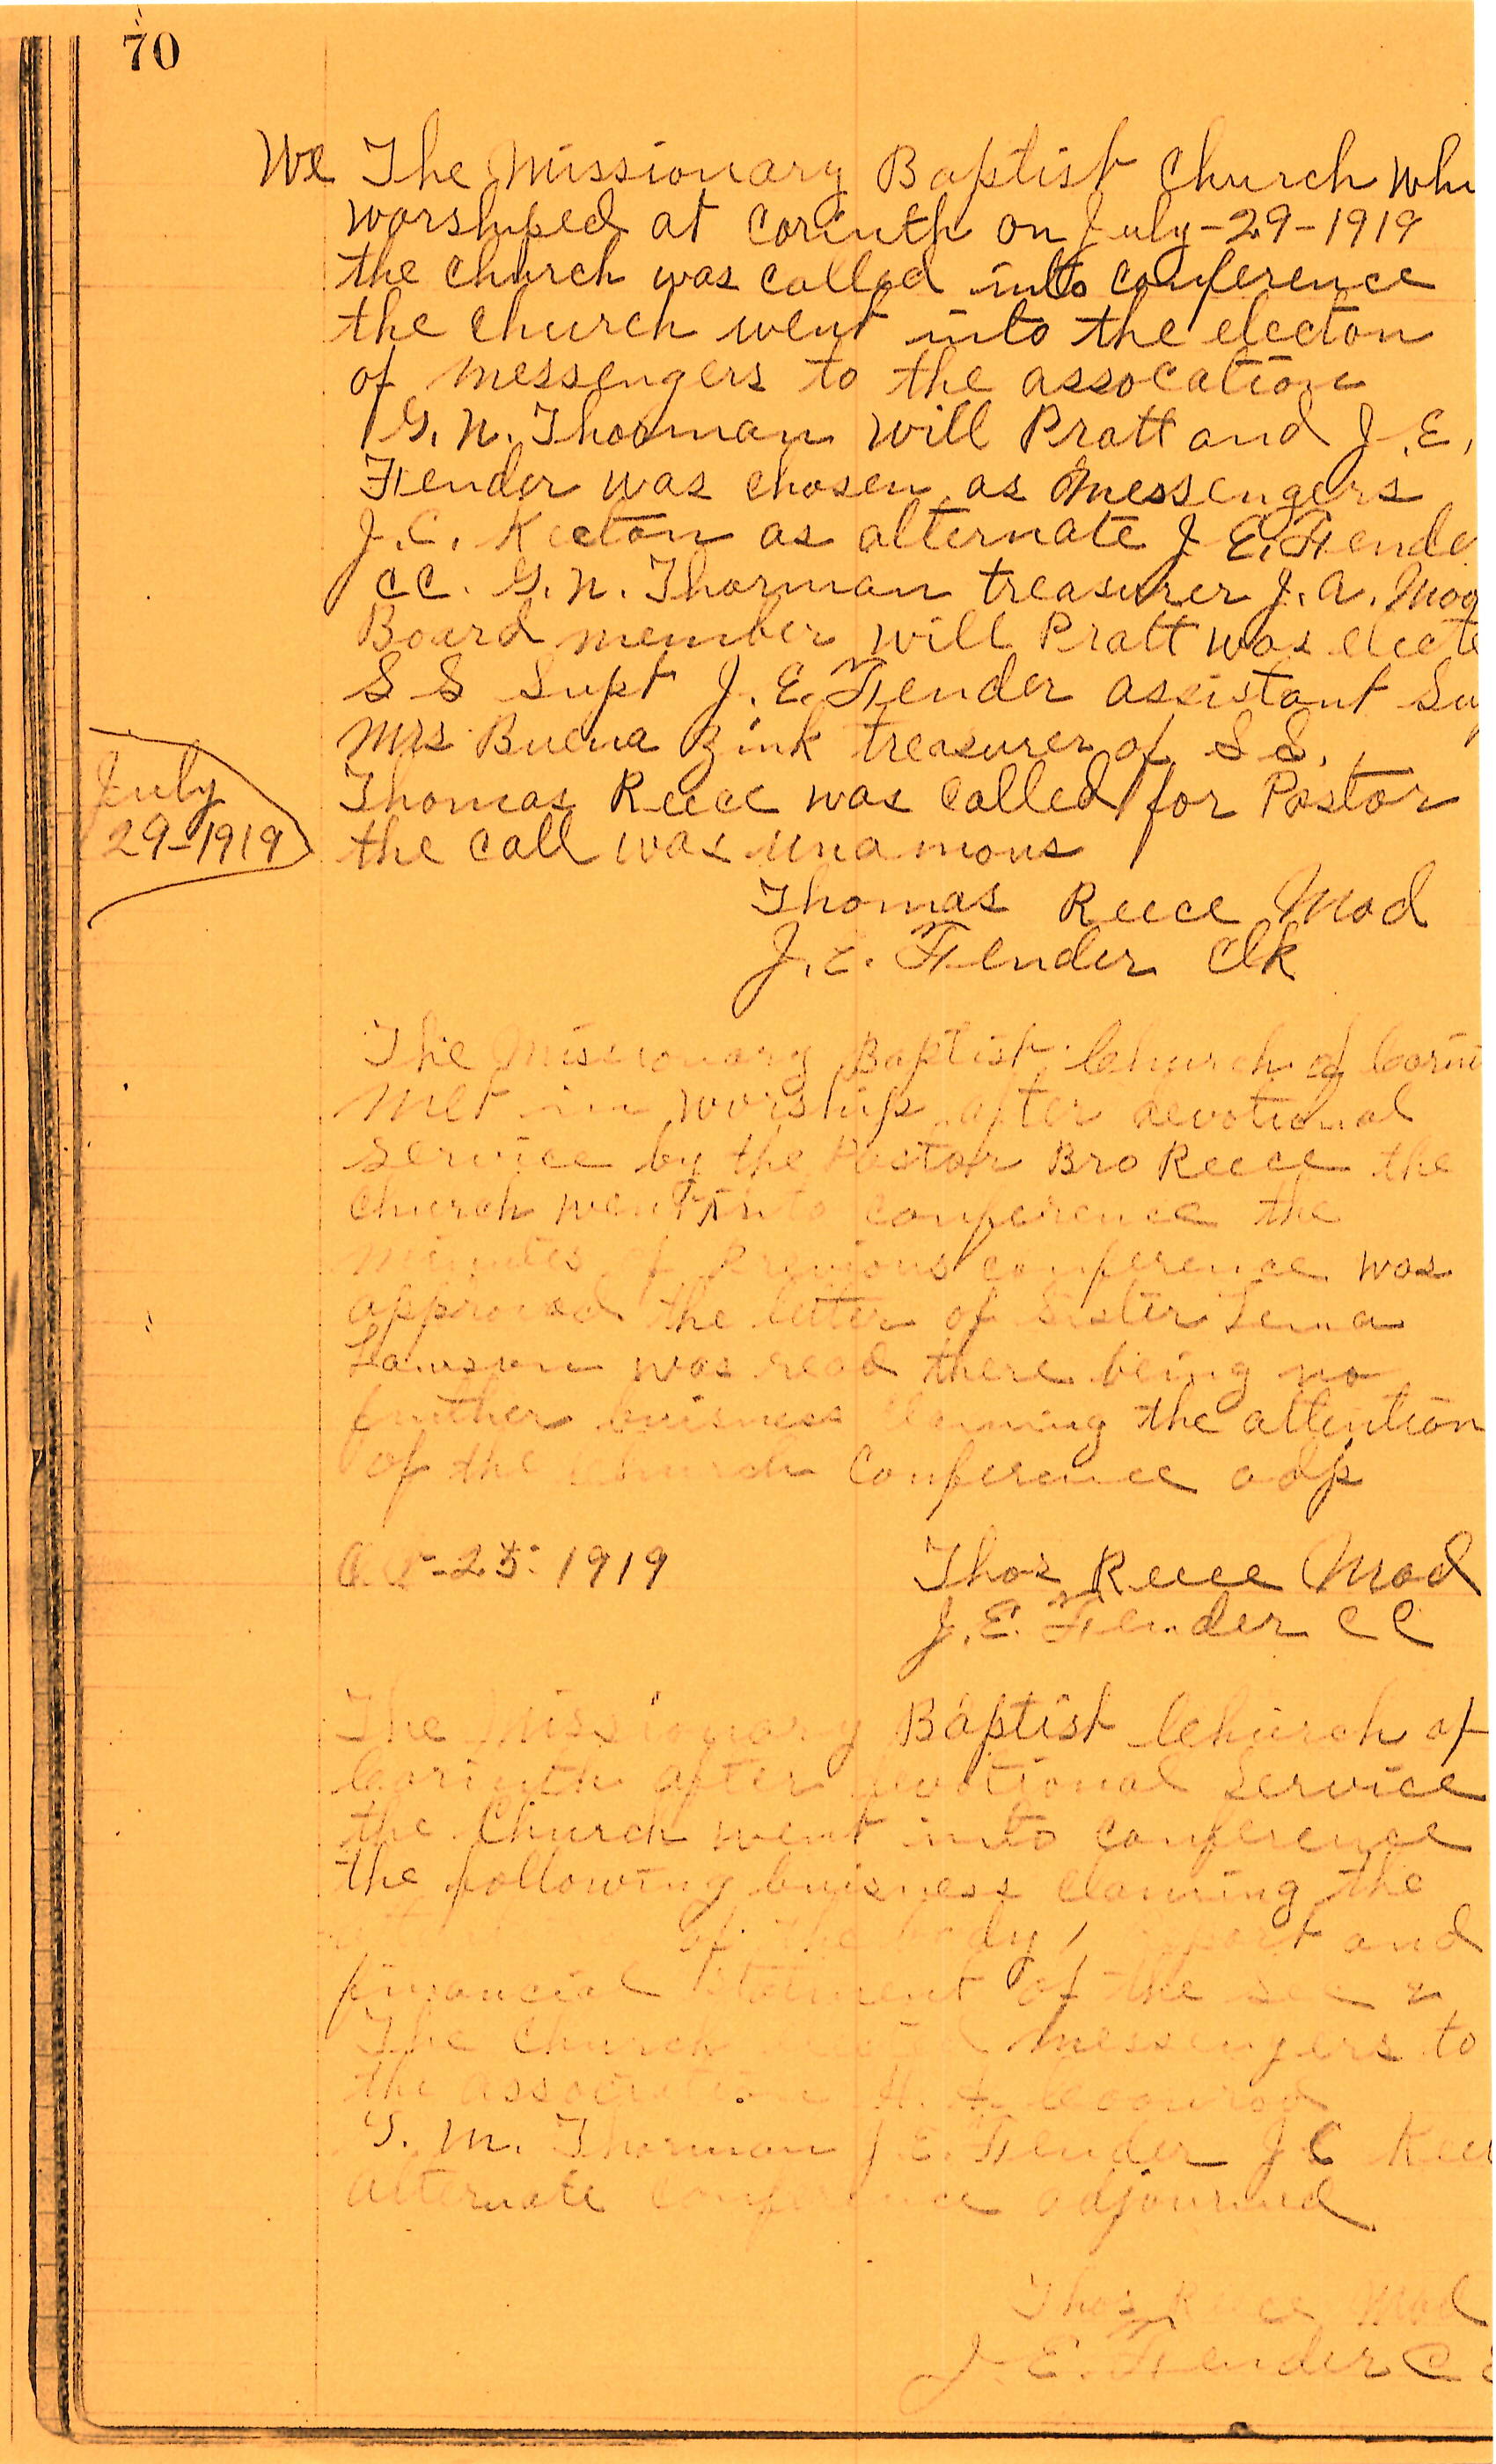 70
We The Missionary Baptist Church who
worshiped at Corinth on July-29-1919
the church was called into conference
the church went into the electon
of messengers to the assocation
G. N. Thorman Will Pratt and J. E.
Fender was chosen as messengers
J. C. Keeton as alternate J E. Fende
CC. G. N. Thorman treasurer J. A.
Board member Will Pratt was electe
S S Supt J. E. Fender assistant Su
Mrs Buena Zink treasurer of S S.
July
29-1919
Thomas Reece was called for Pastor
the call was unamous
Thomas Reece Mod
J. E. Fender Clk
The Missionary Baptist Church of Corin
met in worship after devotional
service by the Pastor Bro Reece the
church went into conference the
minutes of previous conference was
approved the letter of Sister
was read there being no
further buisness claming the attention
of the church conference adj
25. 1919
Thos Reece Mod
J. E. Fender C C
The Missionary Baptist Church of
Corinth after devotional service
the Church went into conference
the following buisness claming the
of the body, report and
financial statment of the
The Church messengers to
the association H.
G. M. Thorman J E. Fender J C Kee
alternate conference adjourned
Thos Reece Mod
J. E. Fender C C